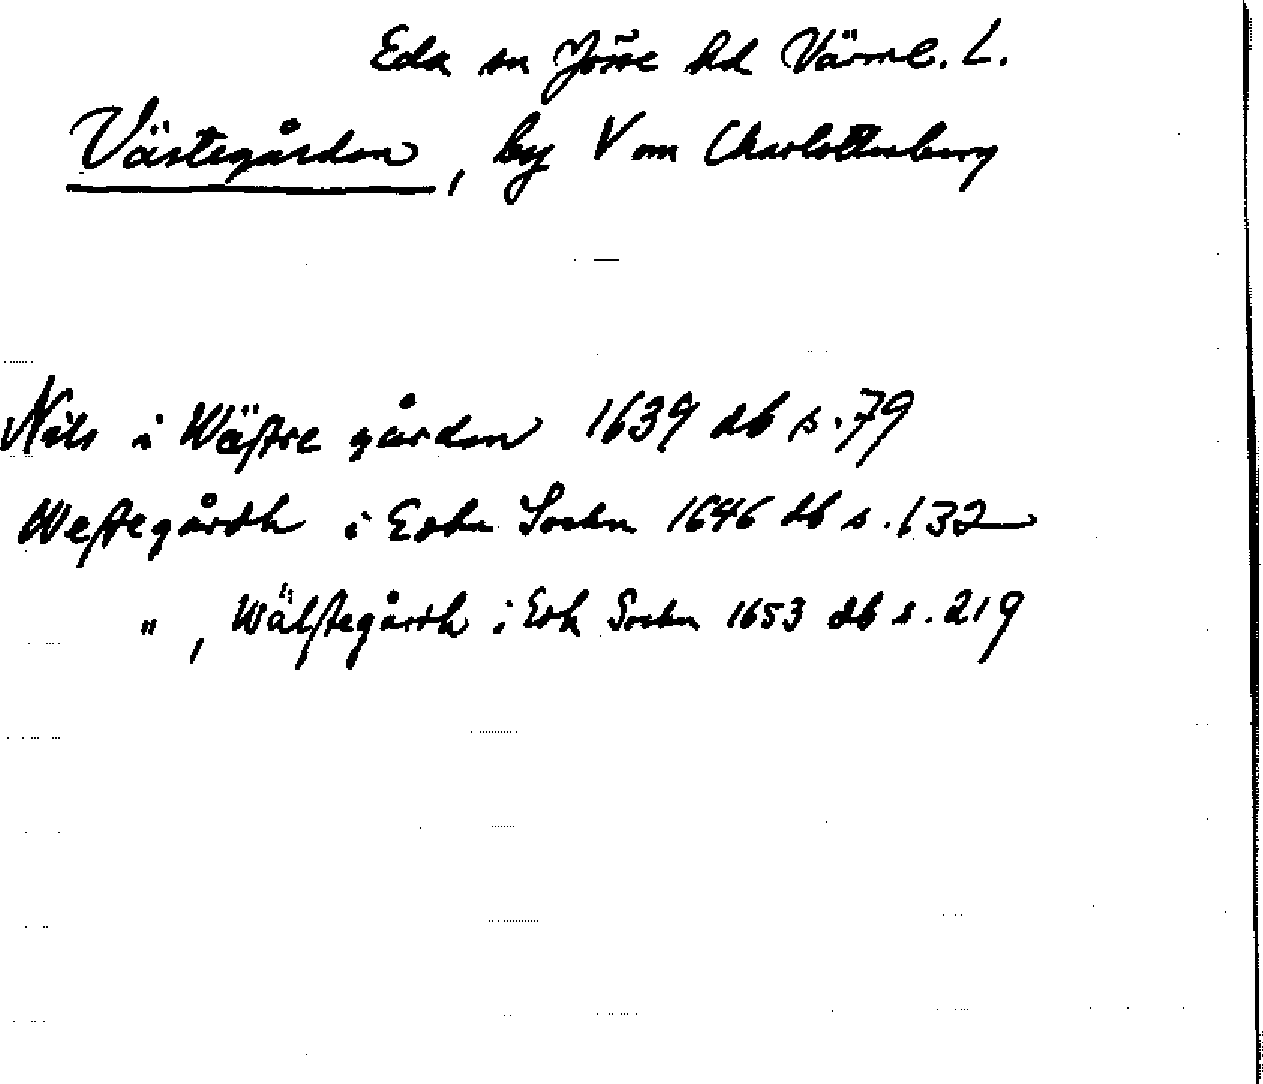 Eda sn Jösse hd Värml. L.
Västegården, by V om Charlottenberg
Nils i Wästre gården 1639 db s. 79
Westegårdh i Eda Sockn 1646 db s. 132
" , Wälstegårdh i Edh Sockn 1653 db s. 219